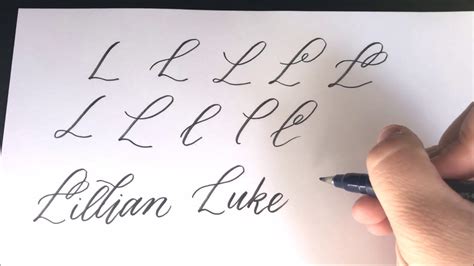 L L L L L
L L l l l
Lillian Luke